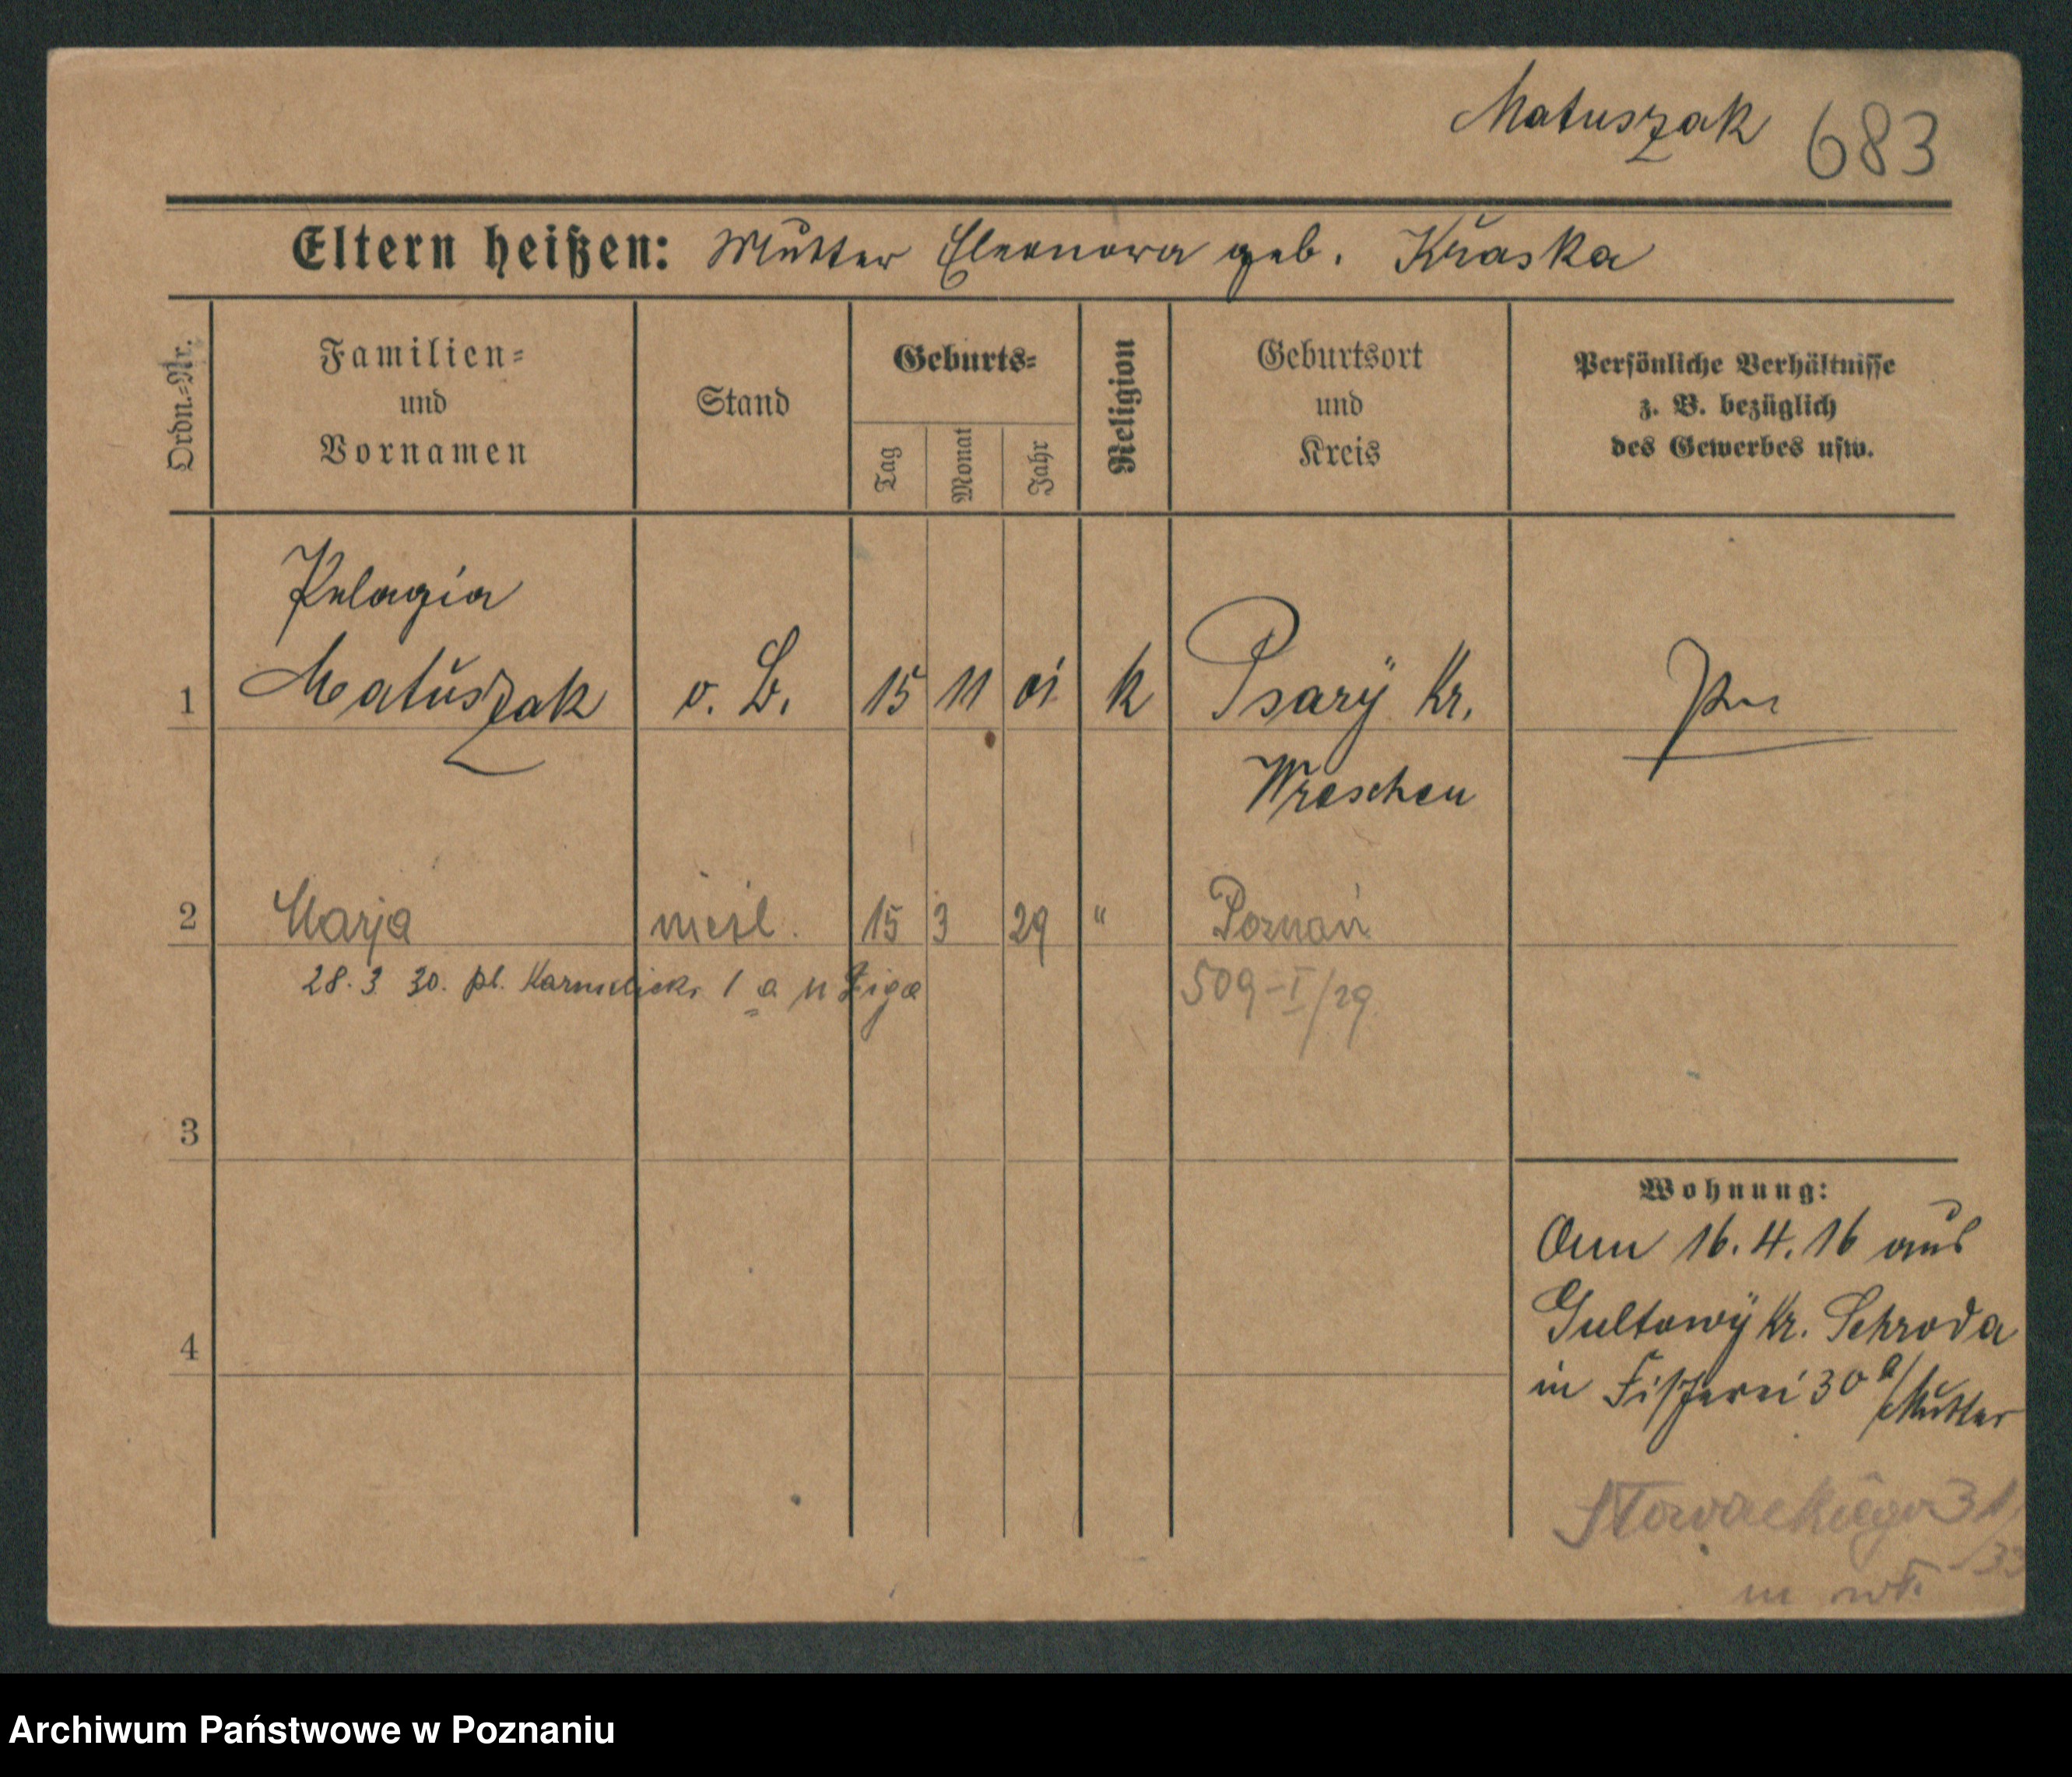 Matuszak 683
Eltern heißen: Mutter Eleonora geb. Kraska
Ordn.=Nr.
Familien=
und
Vornamen
Stand
Geburts=
Tag
Monat
Jahr
Religion
Geburtsort
und
Kreis
Persönliche Verhältnisse
z. B. bezüglich
des Gewerbes usw.
Pelagia
1 Matuszak o. B. 15 11 01 k Psary Kr.
Wreschen
2 Marja nieśl. 15 3 29 " Poznań
28.3 30. pl. Karmelicki 1 a u Ziga
509-I/29
3
4
Wohnung:
16.4.16 aus
Gultowy Kr. Schroda
in Fischerei 30 a/Mutter
Słowackiego 31
Archiwum Państwowe w Poznaniu